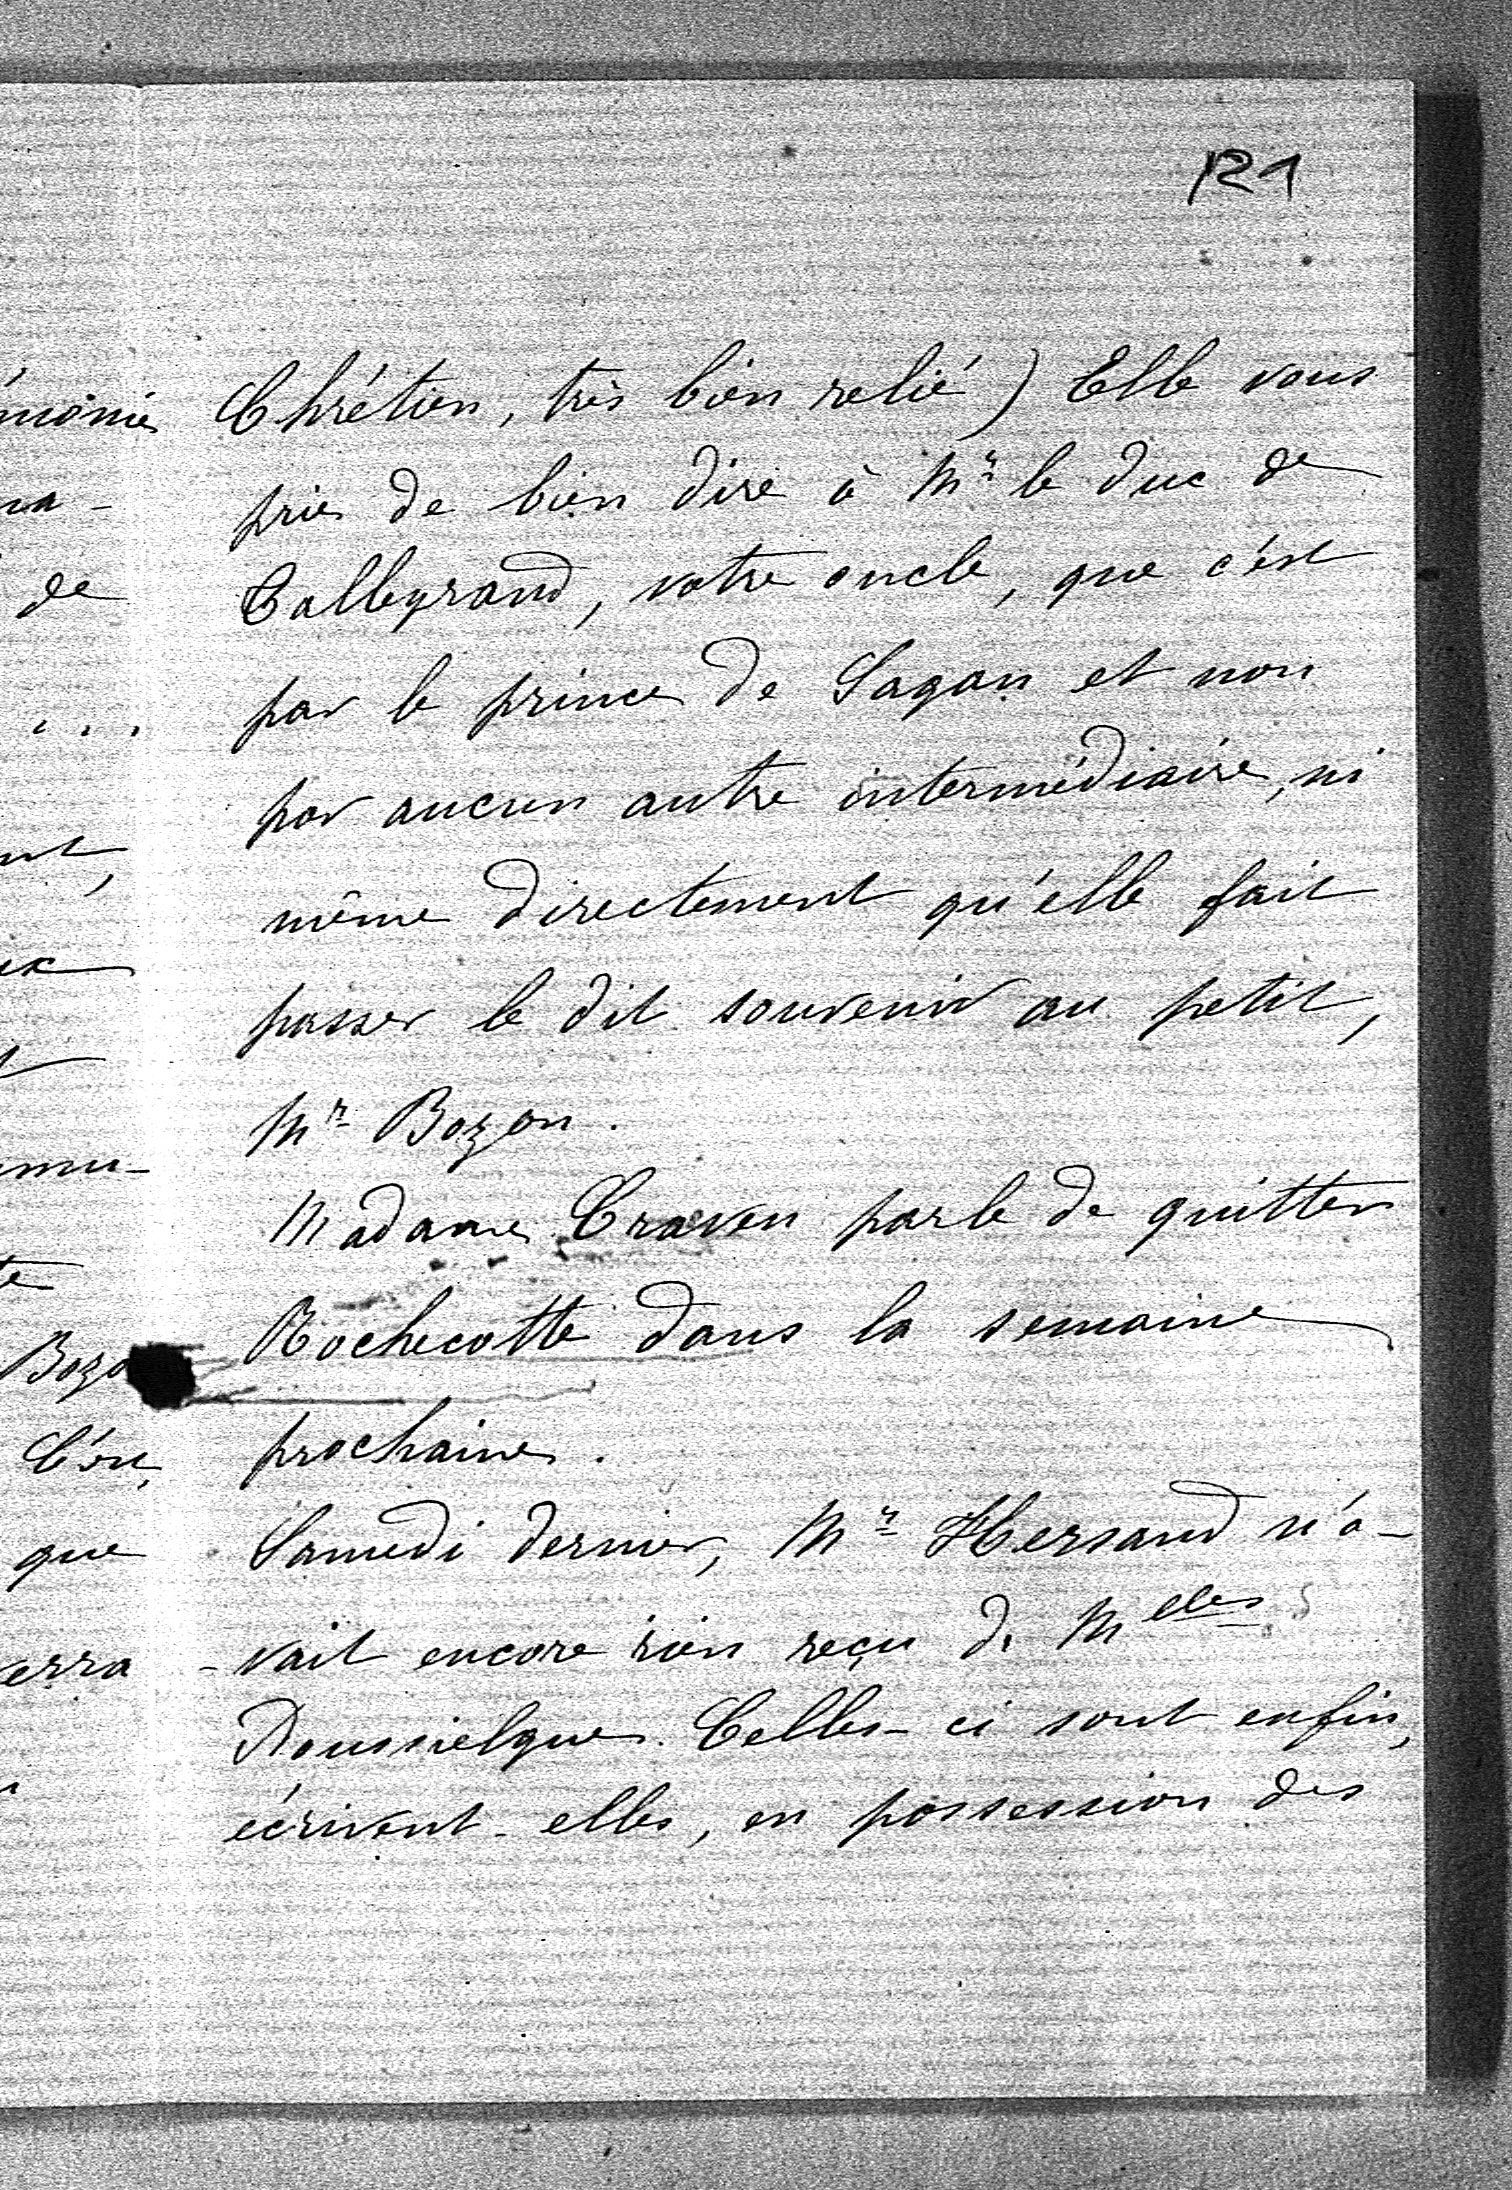 121
Chrétien, très bien relié) Elle vous
prie de bien dire à Mr le duc de
Talleyrand, votre oncle, que c'est
par le prince de Sagan et non
par aucun autre intermédiaire, ni
même directement qu'elle fait
passer le dit souvenir au petit,
Mr Bozon.
Madame Craven parle de quitter
Rochecotte dans la semaine
prochaine.
Samedi dernier, Mr Hersand n'a-
-vait encore rien reçu de Melles
Poussielgue. Celles-ci sont enfin,
écrivent-elles, en possession des
de
...
Bozo
que